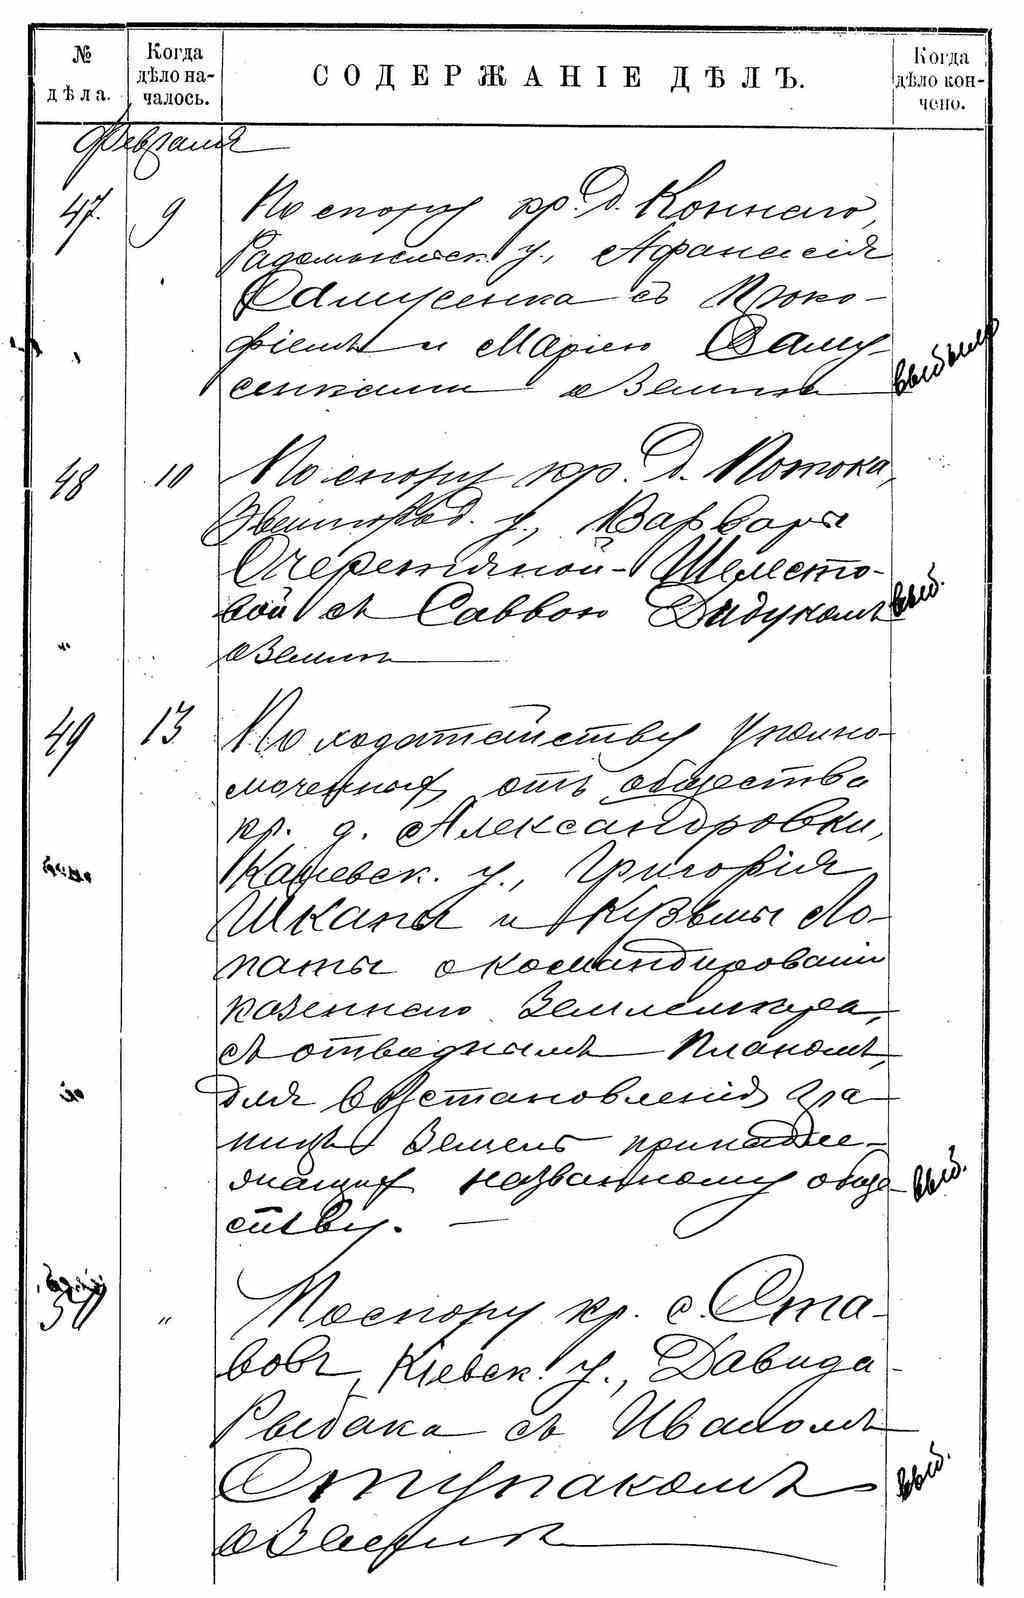 № дѣла.
Когда дѣло на-
чалось.
СОДЕРЖАНІЕ ДѢЛЪ.
Когда дѣло кон-
чено.
Февраля
47. 9 По спору кр. д. Коннаго,
Радомысльск. у., Афанасія
Самусенка съ Проко-
фіемъ и Маріею Саму-
сенками о землѣ
48 10 По спору кр. д. Потока,
Звенигород. у., Варвары
Очеретяной-Шелесто-
вой съ Саввою Дидукомъ выб.
" о землѣ
49 13 По ходатайству уполно-
моченных отъ общества
кр. д. Александровки,
Каневск. у., Григорія
Шкапы и Кузьмы Ло-
паты о командировании
казеннаго землемѣра,
съ отводнымъ планомъ,
для возстановленія гра-
ницъ земель принадле-
жащих названному обще- выб.
ству. —
50 " По спору кр. с. Ста-
вовъ, Кіевск. у., Давида
Рыбака съ Иваномъ
Ступакомъ выб.
о землѣ